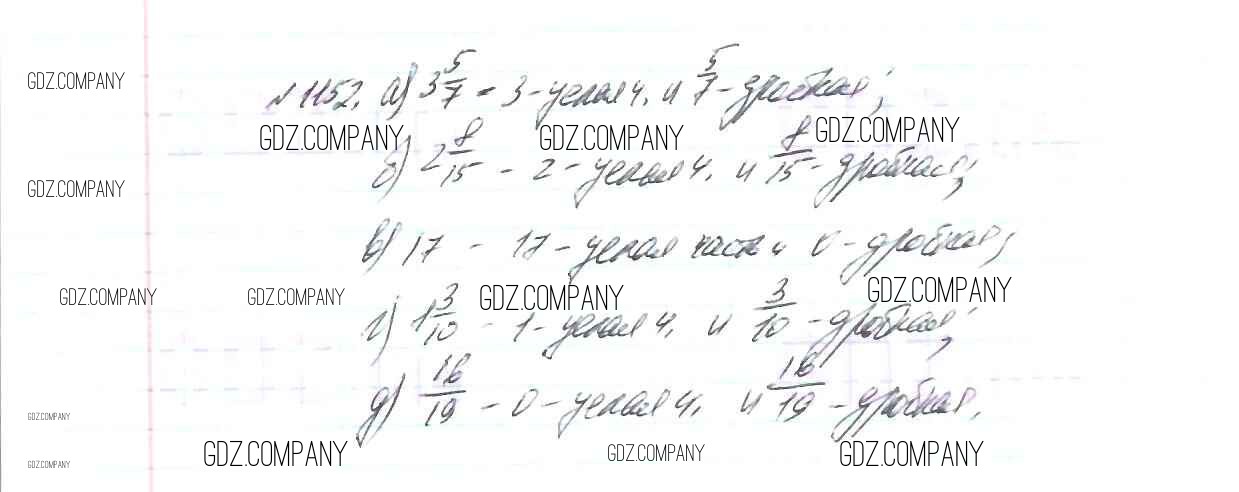 GDZ.COMPANY
№1152. а) 3 5/7 - 3 - целая ч. и 5/7 - дробная;
GDZ.COMPANY GDZ.COMPANY GDZ.COMPANY
б) 2 8/15 - 2 - целая ч. и 8/15 - дробная;
GDZ.COMPANY
в) 17 - 17 - целая часть и 0 - дробная;
GDZ.COMPANY GDZ.COMPANY GDZ.COMPANY GDZ.COMPANY
г) 1 3/10 - 1 - целая ч. и 3/10 - дробная;
д) 16/19 - 0 - целая ч. и 16/19 - дробная.
GDZ.COMPANY
GDZ.COMPANY GDZ.COMPANY GDZ.COMPANY GDZ.COMPANY